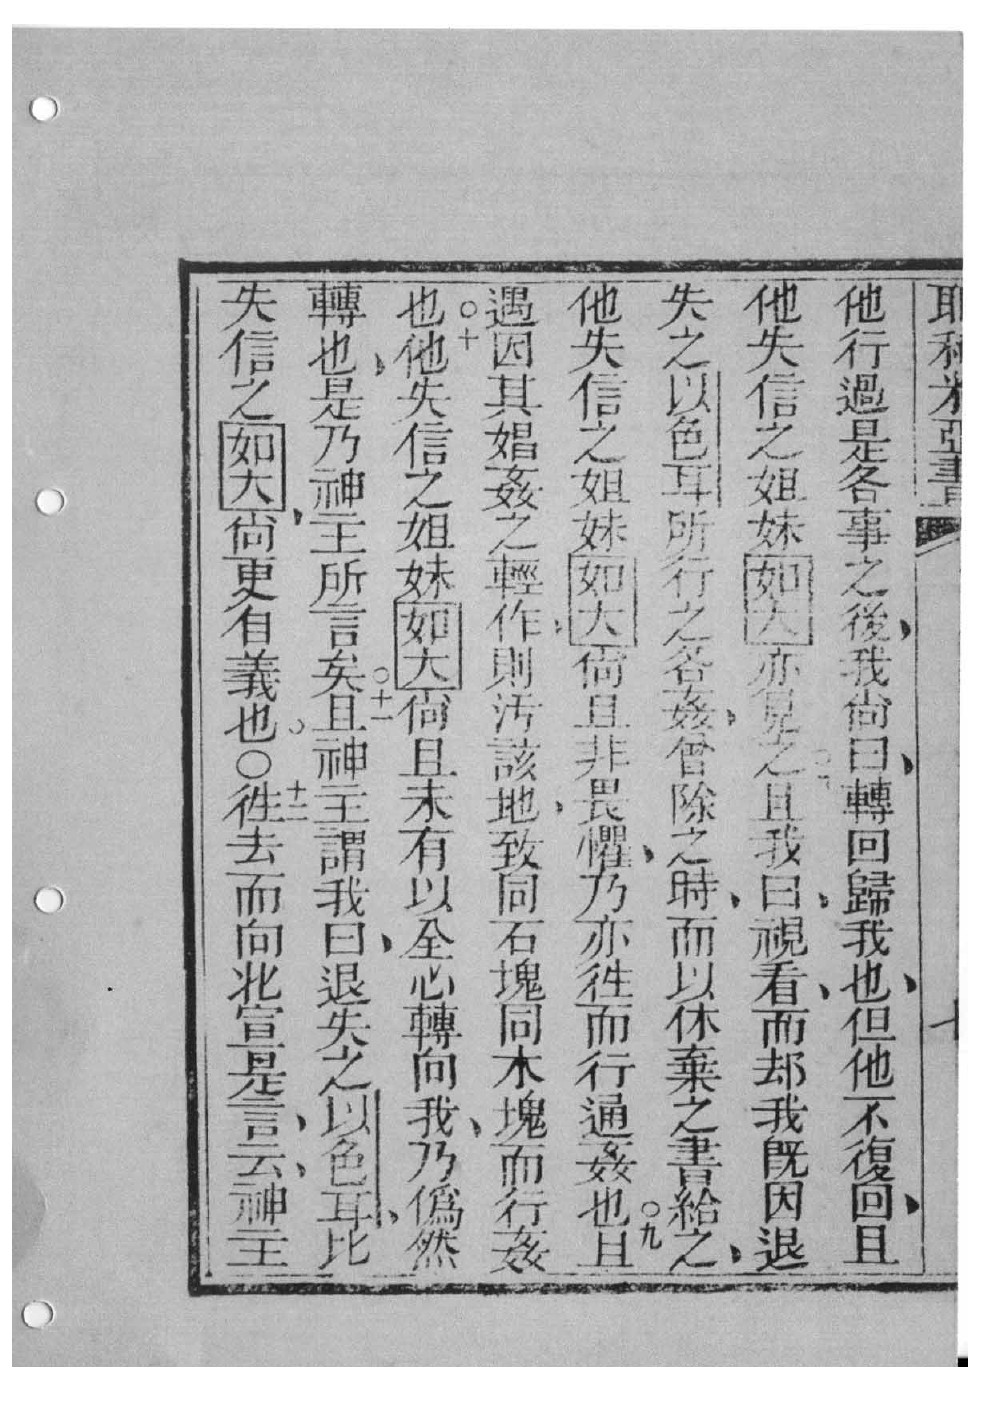 耶利米亞書 七
他行過是各事之後、我尙曰、轉回歸我也、但他不復回、且
他失信之姐妹如大亦見之○八且我曰、視看、而却我旣因退
失之以色耳所行之各姦、曾除之時、而以休棄之書給之、
他失信之姐妹如大尙且非畏懼、乃亦徃而行通姦也○九且
遇因其娼姦之輕作、則汚該地、致同石塊同木塊而行姦
也○十他失信之姐妹如大尙且未有以全心轉向我、乃僞然
轉也、是乃神主所言矣○十一且神主謂我曰、退失之以色耳、比
失信之如大、尙更有義也。○十二徃去而向北宣是言、云、神主